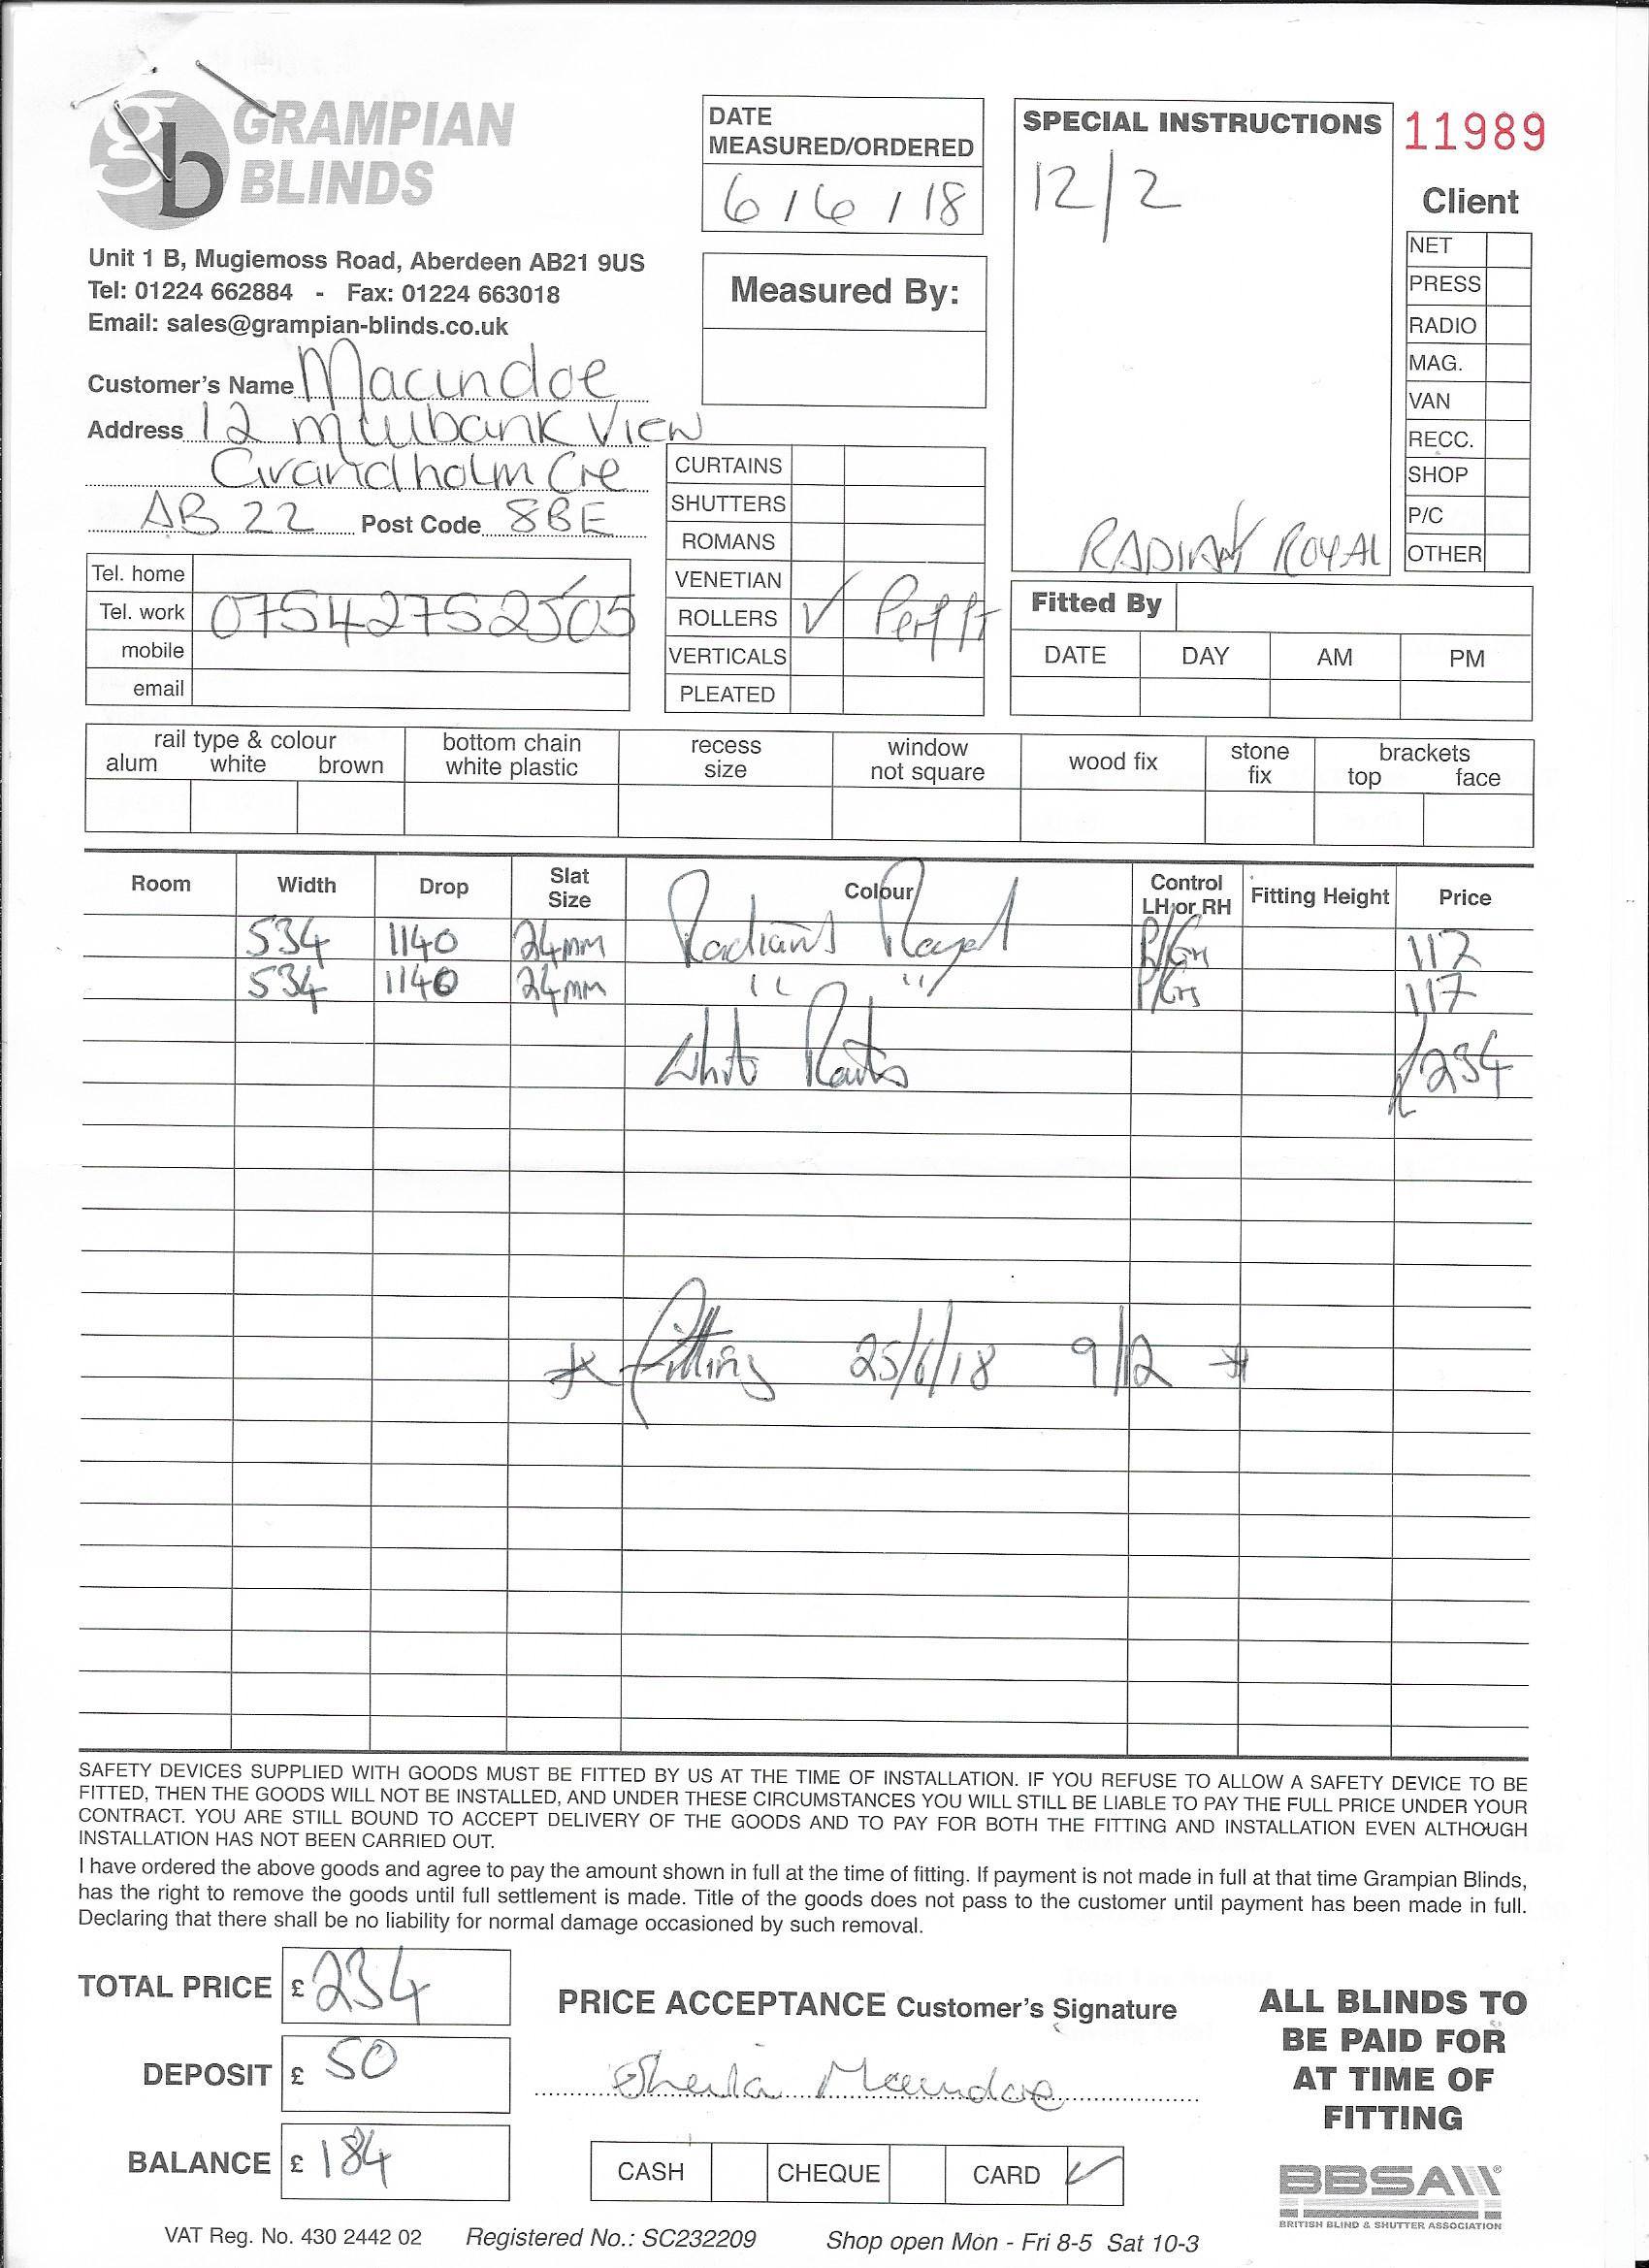 GRAMPIAN
BLINDS
Unit 1 B, Mugiemoss Road, Aberdeen AB21 9US
Tel: 01224 662884 - Fax: 01224 663018
Email: sales@grampian-blinds.co.uk
DATE
MEASURED/ORDERED
6/6/18
Measured By:
SPECIAL INSTRUCTIONS
12/2
RADIANT ROYAL
11989
Client
NET
PRESS
RADIO
MAG.
VAN
RECC.
SHOP
P/C
OTHER
Customer's Name Macindoe
Address 12 Millbank View
Grandholm Cre
AB 22 Post Code 8BE
Tel. home
Tel. work 07542752505
mobile
email
CURTAINS
SHUTTERS
ROMANS
VENETIAN
ROLLERS ✓ Perf
VERTICALS
PLEATED
Fitted By
DATE DAY AM PM
rail type & colour
alum white brown
bottom chain
white plastic
recess
size
window
not square
wood fix
stone
fix
brackets
top face
Room Width Drop Slat Size Colour Control LH or RH Fitting Height Price
534 1140 24mm Radiant Royal 117
534 1140 24mm " " 117
White £234
* Fitting 25/6/18 9/12 *
SAFETY DEVICES SUPPLIED WITH GOODS MUST BE FITTED BY US AT THE TIME OF INSTALLATION. IF YOU REFUSE TO ALLOW A SAFETY DEVICE TO BE
FITTED, THEN THE GOODS WILL NOT BE INSTALLED, AND UNDER THESE CIRCUMSTANCES YOU WILL STILL BE LIABLE TO PAY THE FULL PRICE UNDER YOUR
CONTRACT. YOU ARE STILL BOUND TO ACCEPT DELIVERY OF THE GOODS AND TO PAY FOR BOTH THE FITTING AND INSTALLATION EVEN ALTHOUGH
INSTALLATION HAS NOT BEEN CARRIED OUT.
I have ordered the above goods and agree to pay the amount shown in full at the time of fitting. If payment is not made in full at that time Grampian Blinds,
has the right to remove the goods until full settlement is made. Title of the goods does not pass to the customer until payment has been made in full.
Declaring that there shall be no liability for normal damage occasioned by such removal.
TOTAL PRICE £ 234
DEPOSIT £ 50
BALANCE £ 184
PRICE ACCEPTANCE Customer's Signature
Sheila Macindoe
CASH CHEQUE CARD ✓
ALL BLINDS TO
BE PAID FOR
AT TIME OF
FITTING
BBSA
BRITISH BLIND & SHUTTER ASSOCIATION
VAT Reg. No. 430 2442 02 Registered No.: SC232209 Shop open Mon - Fri 8-5 Sat 10-3